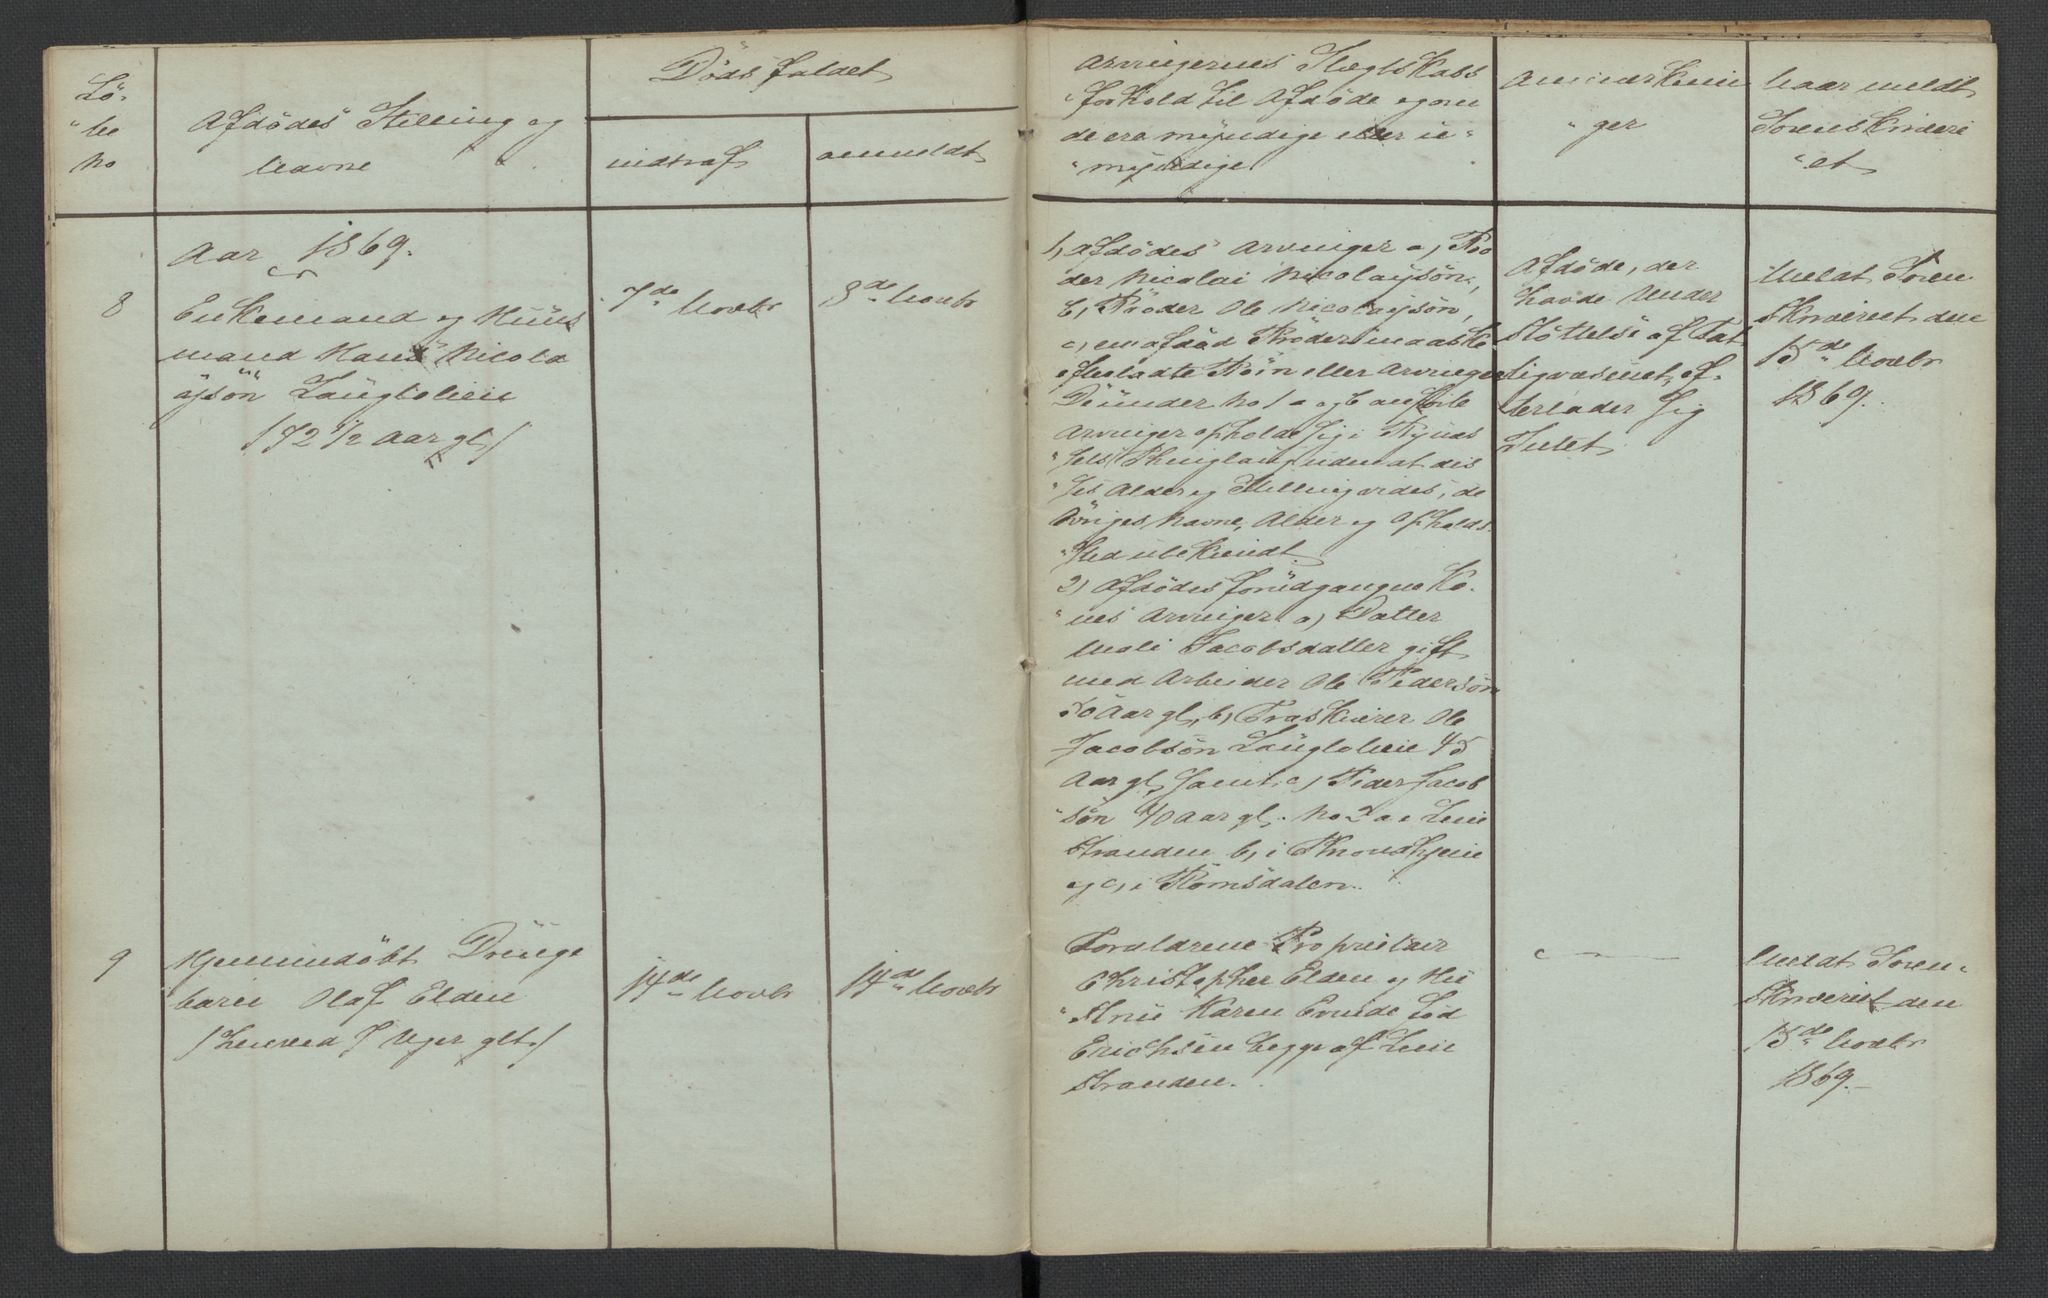 Lö-
"be
No
Afdødes Stilling og
Navne
Døds faldet
indtraf
anmeldt
Arvingernes Slægtskabs
"forhold til Afdøde og om
de ere myndige eller u"
"myndige
Anmærknin
"ger
Naar meldt
Sorenskriveri
"et
Aar 1869.
8
Enkemand og Huus
mand Hans Nicola
ysön Laugloleie
/72 1/2 Aar gl/
7de Novbr
8de Novbr
1, Afdödes Arvinger a, Bro
der Nicolai Nicolaysön,
b, Broder Ole Nicolaysön,
c, en afdöd Broder maaske
efterladte Börn eller Arvinger
Arvinger opholde sig i
"ses Alder og Stilling vides, de
övriges Navne, Alder og Opholds
"sted ubekjendt
2, Afdödes forudgangne Ko
"nes Arvinger a, Datter
Mali Jacobsdatter gift
med Arbeider Ole Pedersön
50 Aar gl, b, Træskjærer Ole
Jacobsön Laugloleie 45
Aar gl, samt c, Peder Jacob
"sön 40 Aar gl, No 2 a i Lein
stranden b, i Throndhjem
og c, i Romsdalen.
Afdøde, der
havde Under
stöttelse af Fat
tigvæsenet, ef-
terlader sig
Intet
Meldt Soren
skriveriet den
15de Novbr
1869.
9
Hjemmedöbt Drenge
barn Olaf Elden
/henved 7 Uger glt/
14de Novbr
14de Novbr
Forældrene Proprietær
Christopher Elden og Hu
"stru Karen
Erichsen begge af Lein
stranden.
Meldt Soren-
skriveriet den
15de Novbr
1869.